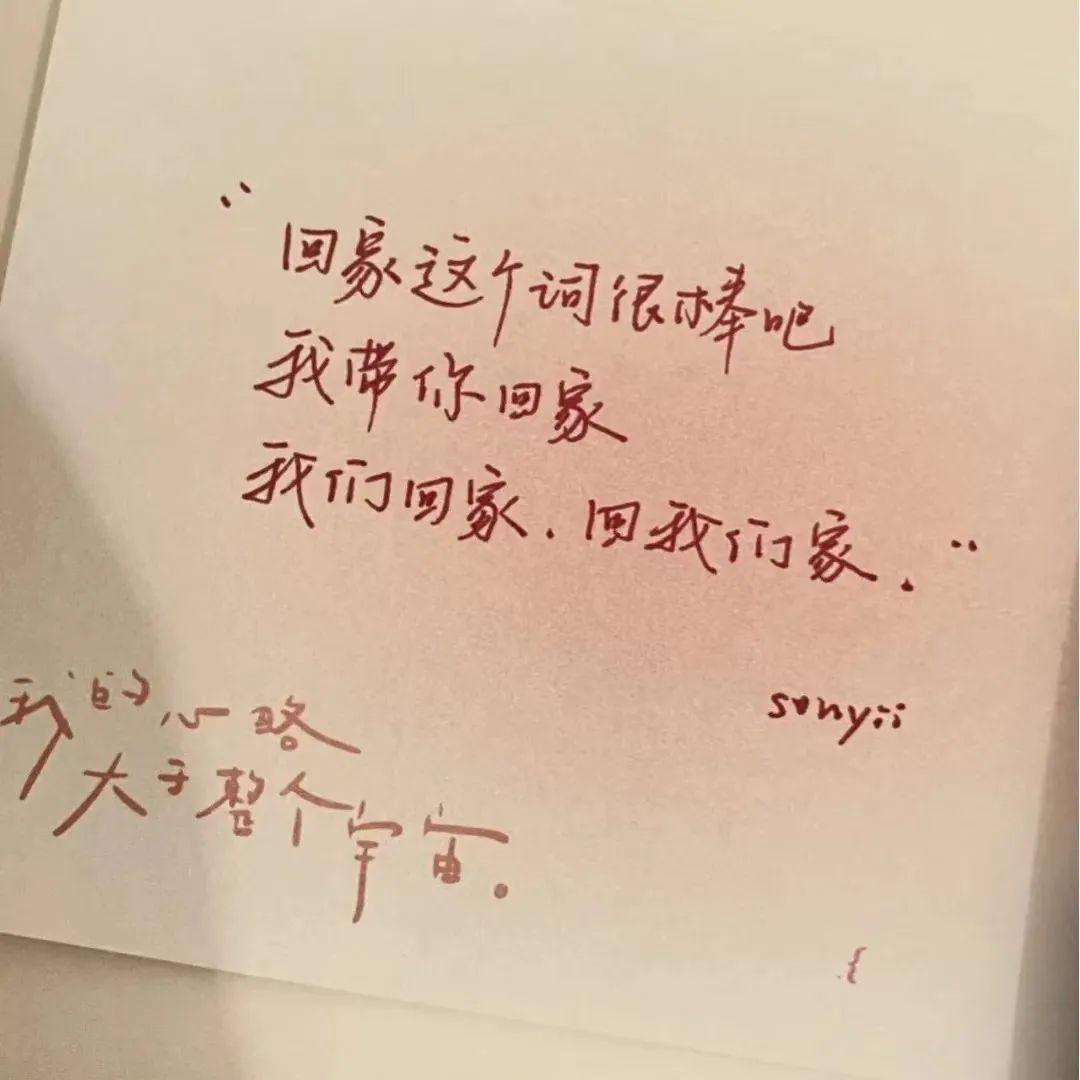 “回家这个词很棒吧
我带你回家
我们回家.回我们家.”
sunyii
我的心略
大于整个宇宙。
{